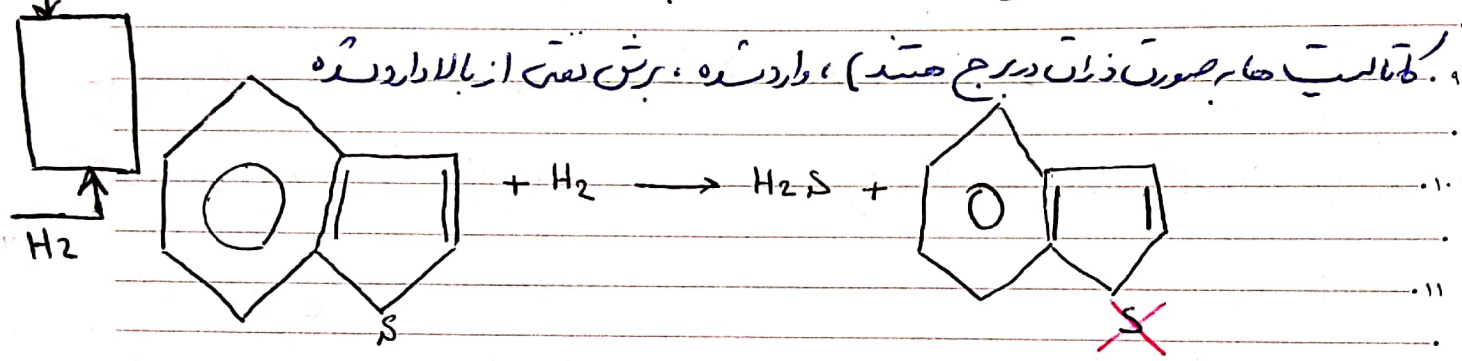 کاتالیست ها به صورت ذرات در برج هستند) ، وارد شده ، برش نفتی از بالا وارد شده
+ H2 → H2S +
H2
S
S